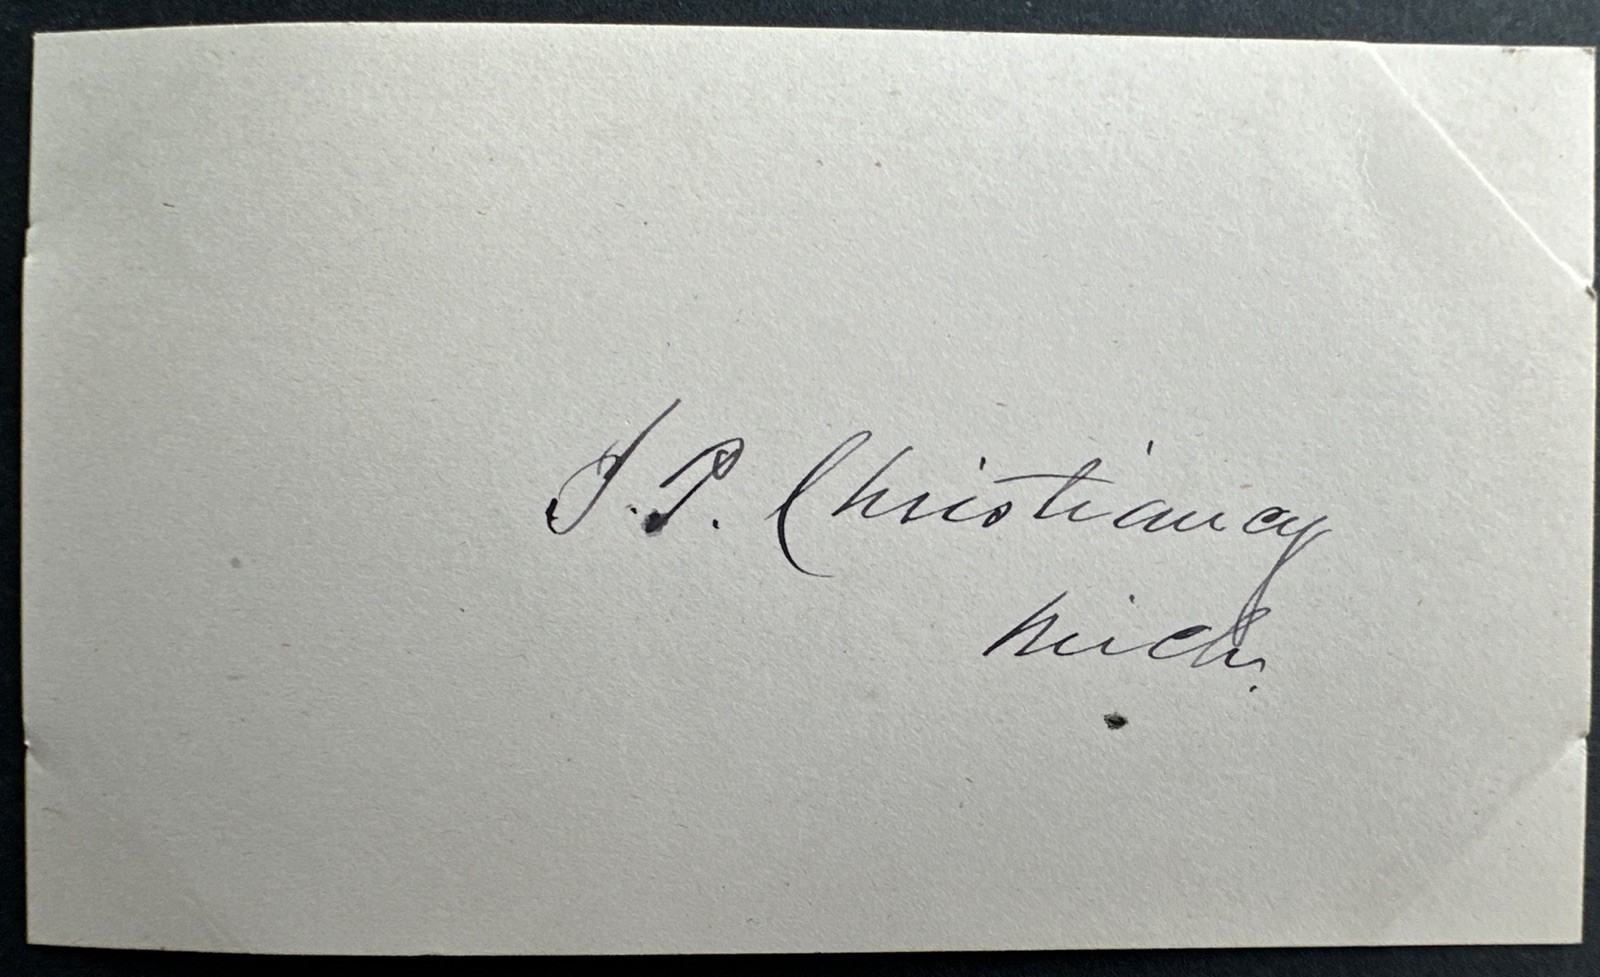 I. P. Christiancy
Mich.